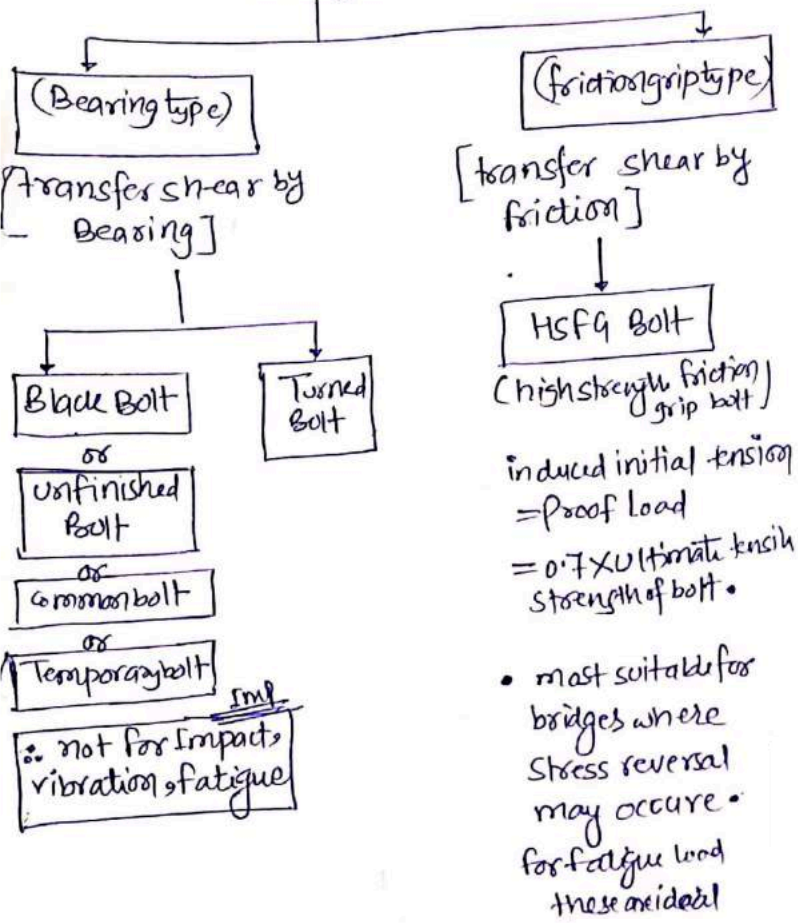 (Bearing type)
[transfer shear by
Bearing]
Black Bolt
or
unfinished
Bolt
or
common bolt
or
Temporary bolt
Imp
∴ not for Impact,
vibration, fatigue
Turned
Bolt
(friction grip type)
[transfer shear by
friction]
HSFG Bolt
(high strength friction
grip bolt)
induced initial tension
= Proof Load
= 0.7 X Ultimate tensile
strength of bolt.
• most suitable for
bridges where
stress reversal
may occure.
for fatigue load
these are ideal